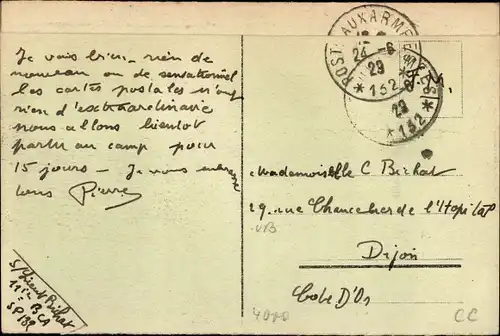 Je vais bien - rien de
nouveau ou de sensationnel
Les cartes postales n'ont
rien d'extraordinaire
nous allons bientot
partir au camp pour
15 jours - Je vous embrasse
tous Pierre
S/Lieut Bichat
11e BCA
SP 189
POSTE AUX ARMEES
24-6
29
*132*
29
*132*
Mademoiselle C Bichat
29 rue Chancelier de l'Hopital
Dijon
Cote D'Or
CC